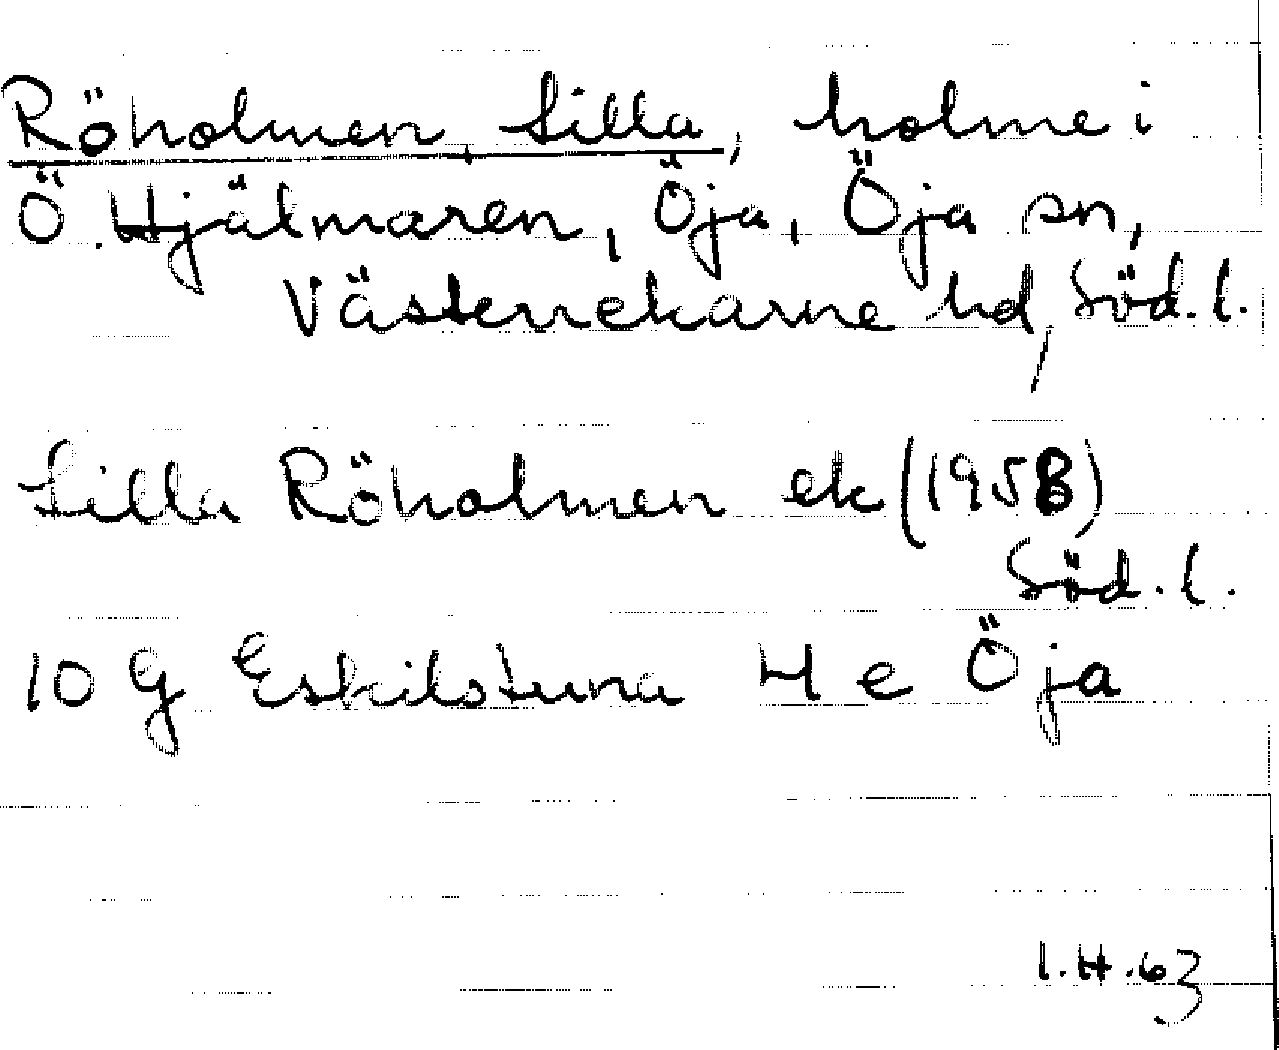 Röholmen, Lilla, holme i
Ö. Hjälmaren, Öja, Öja sn,
Västerrekarne hd, Söd. l.
Lilla Röholmen ek (1958)
Söd. l.
10 G Eskilstuna 4 e Öja
I.H.63